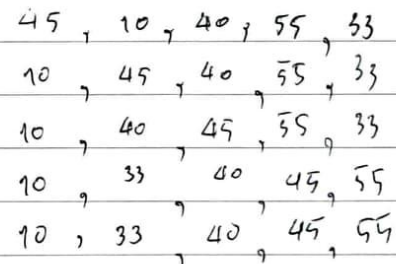 45, 10, 40, 55, 33
10, 45, 40, 55, 33
10, 40, 45, 55, 33
10, 33, 40, 45, 55
10, 33, 40, 45, 55